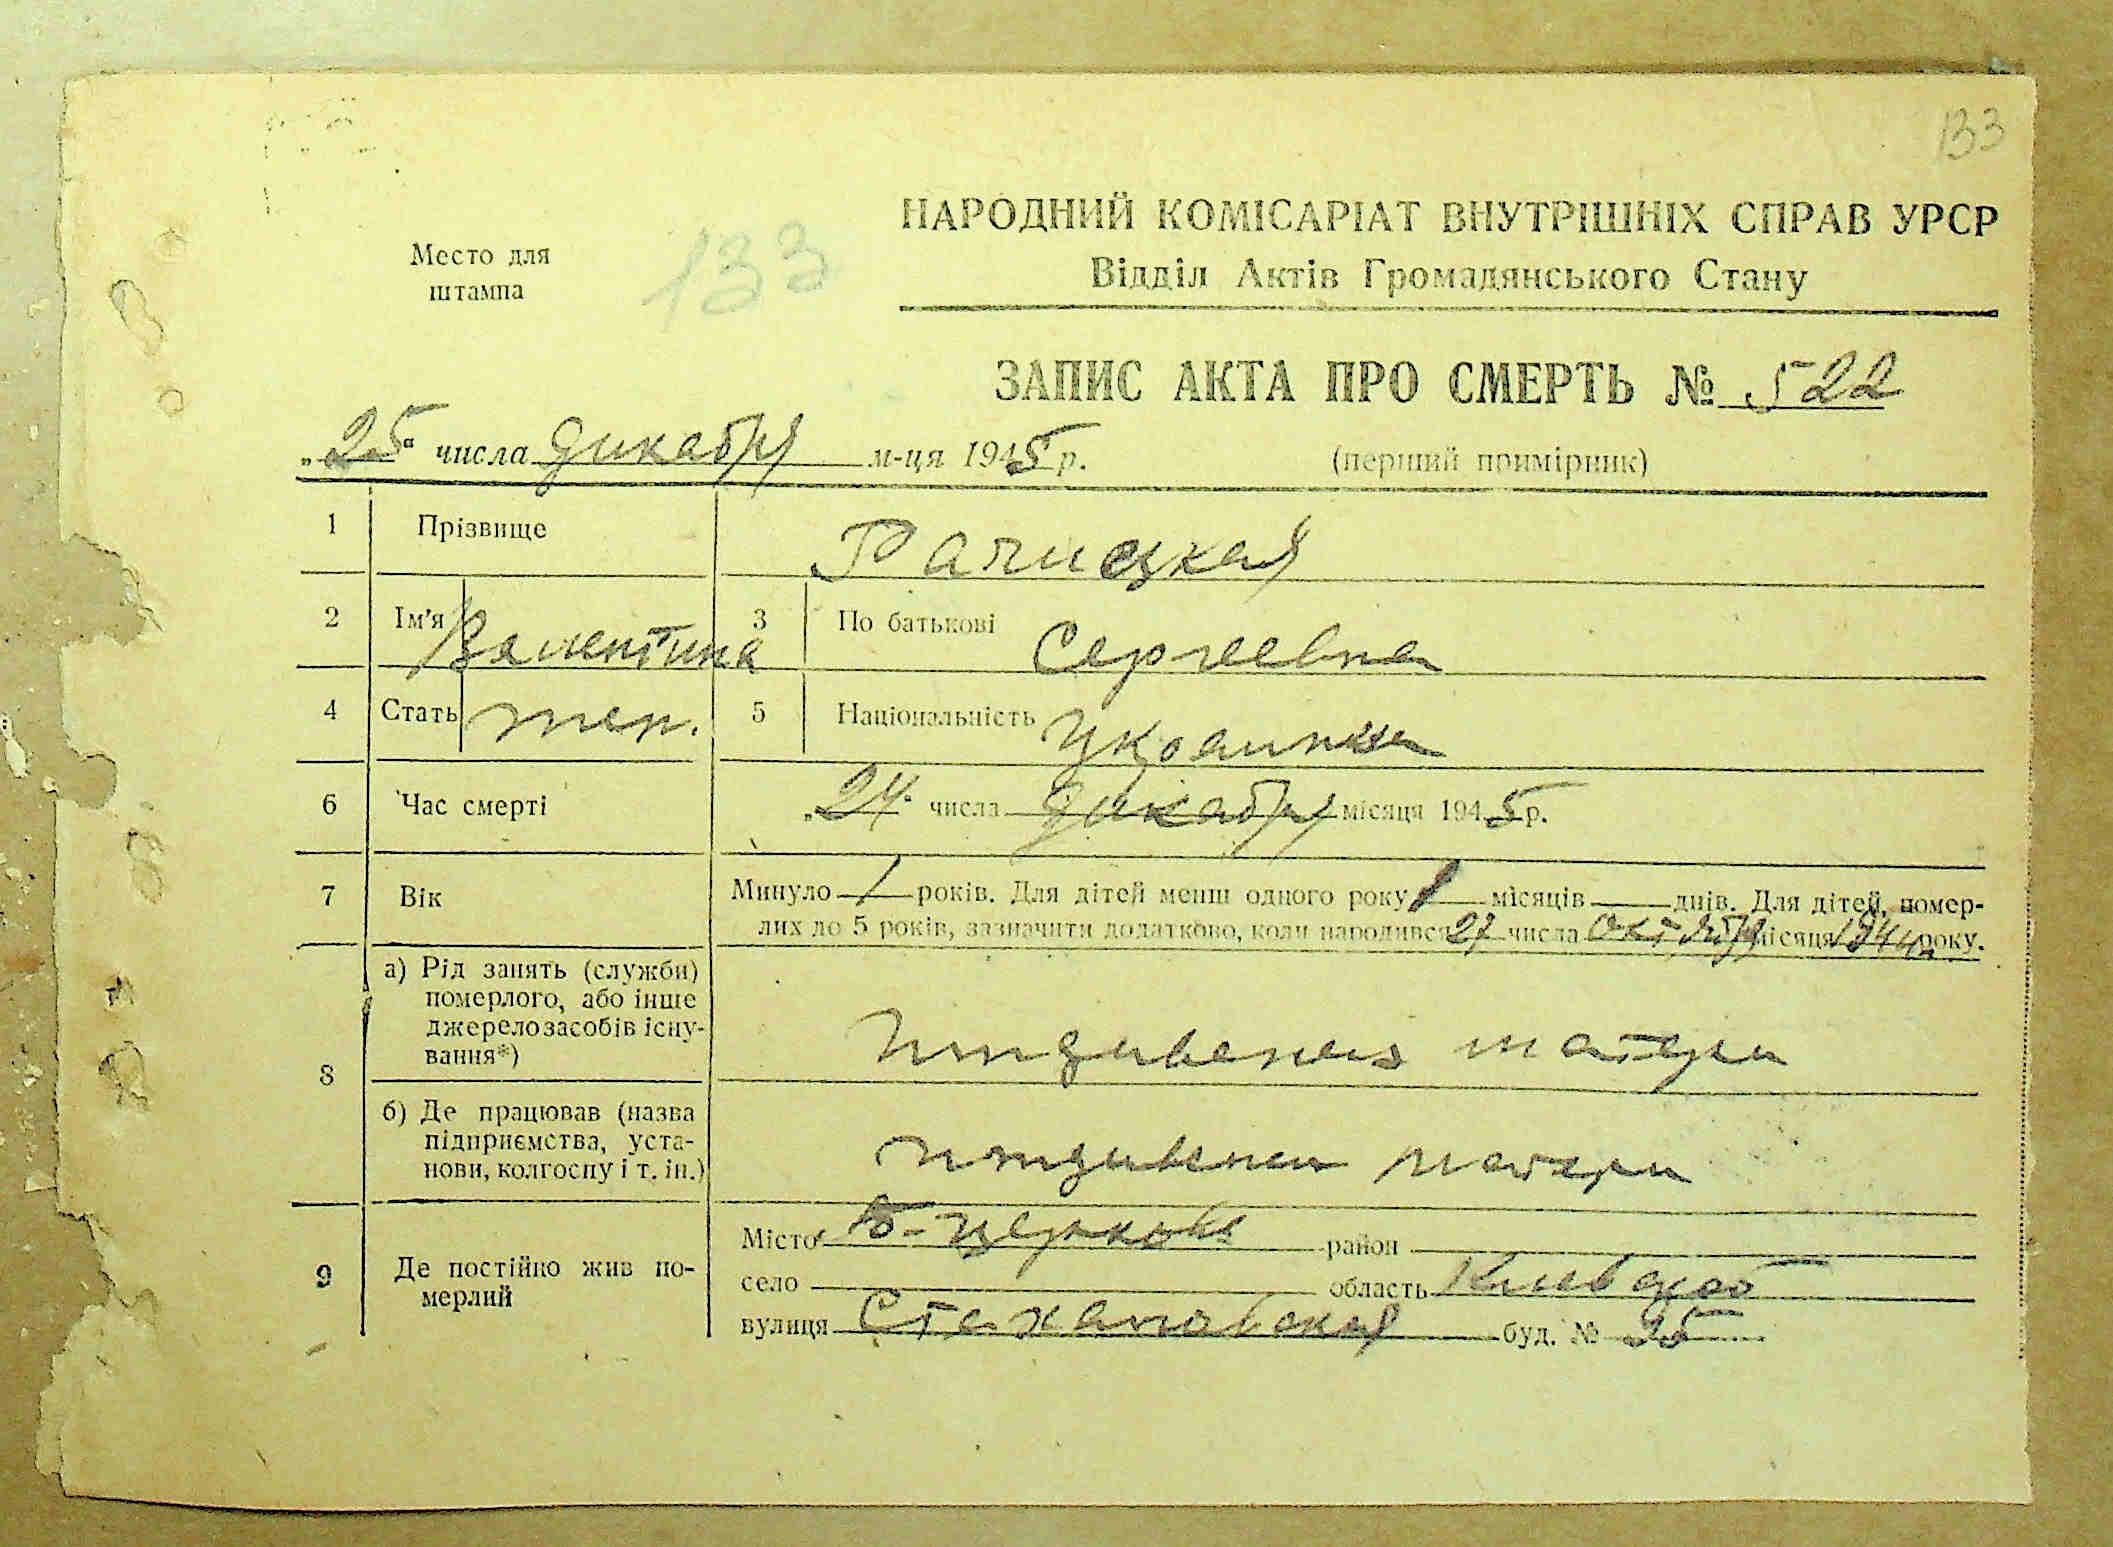 133
НАРОДНИЙ КОМІСАРІАТ ВНУТРІШНІХ СПРАВ УРСР
Відділ Актів Громадянського Стану
Место для
штампа
133
ЗАПИС АКТА ПРО СМЕРТЬ № 522
"25" числа декабря м-ця 1945 р. (перший примірник)
1 Прізвище Рачицкая
2 Ім'я Валентина 3 По батькові Сергеевна
4 Стать жен. 5 Національність Украинка
6 Час смерті "24" числа декабря місяця 1945 р.
7 Вік Минуло 1 років. Для дітей менш одного року місяців днів. Для дітей, помер-
лих до 5 років, зазначити додатково, коли народився 27 числа октября місяця 1944 року.
8 а) Рід занять (служби)
померлого, або інше
джерело засобів існу-
вання*)
иждивение матери
б) Де працював (назва
підприємства, уста-
нови, колгоспу і т. ін.)
иждивении матери
9 Де постійно жив по-
мерлий
Місто Б-Церковь район
село область Киевской
вулиця Стахановская буд. № 25